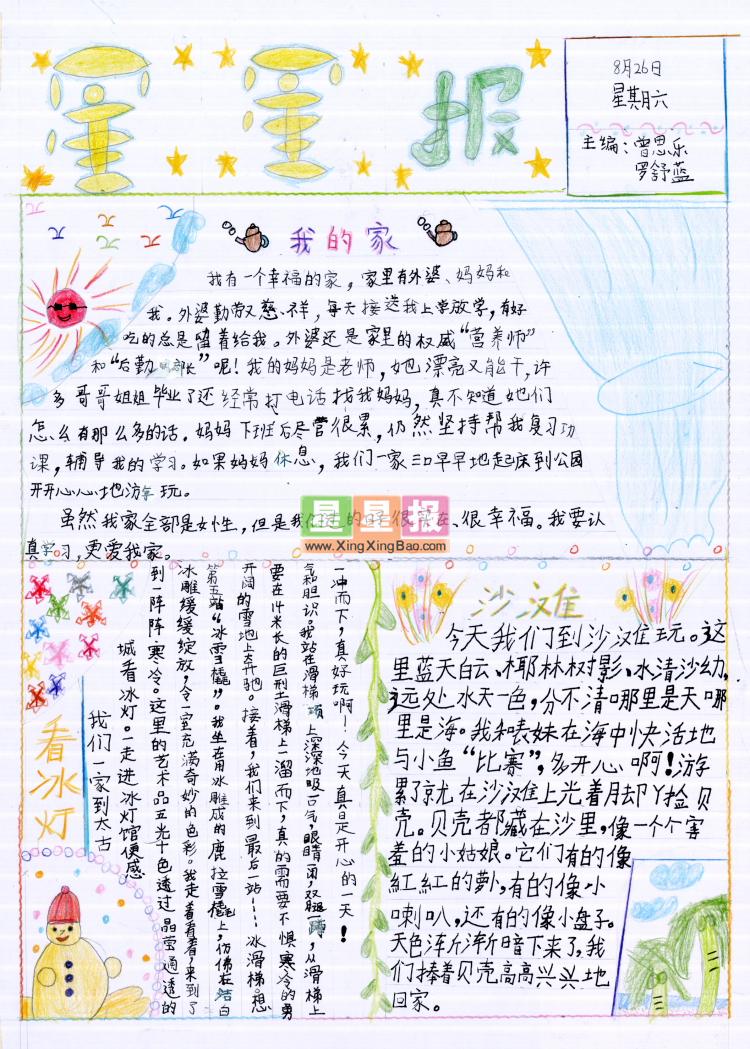 星星报
8月26日
星期六
主编:曾思乐
罗舒蓝
我的家
我有一个幸福的家,家里有外婆、妈妈和
我。外婆勤劳又慈祥,每天接送我上学放学,有好
吃的总是留着给我。外婆还是家里的权威“营养师”
和“后勤部长”呢!我的妈妈是老师,她漂亮又能干,许
多哥哥姐姐毕业了还经常打电话找我妈妈,真不知道她们
怎么有那么多的话。妈妈下班后尽管很累,仍然坚持帮我复习功
课,辅导我的学习。如果妈妈休息,我们一家三口早早地起床到公园
开开心心地游玩。
虽然我家全部是女性,但是我们过的很、很幸福。我要认
真学习,更爱我家。
星星报
www.XingXingBao.com
看冰灯
我们一家到太古
城看冰灯。一走进冰灯馆便感
到一阵阵寒冷。这里的艺术品五光十色透过晶莹通透的
冰雕缓缓绽放,令一室充满奇妙的色彩。我走着看着,来到了
第五站“冰雪橇”。我坐在用冰雕成的鹿拉雪橇上,仿佛在洁白
开阔的雪地上奔驰。接着,我们来到最后一站……冰滑梯。想
要在14米长的巨型土滑梯上一溜而下,真的需要不惧寒冷的勇
气和胆识。我站在滑梯顶上深深地吸口气,眼睛一闭,双腿一蹬,从滑梯上
一冲而下,真好玩啊!今天真是开心的一天!
沙滩
今天我们到沙滩玩。这
里蓝天白云、椰林树影、水清沙幼,
远处水天一色,分不清哪里是天哪
里是海。我和表妹在海中快活地
与小鱼“比赛”,多开心啊!游
累了就在沙滩上光着脚丫捡贝
壳。贝壳都藏在沙里,像一个个害
羞的小姑娘。它们有的像
红红的萝卜,有的像小
喇叭,还有的像小盘子。
天色渐渐暗下来了,我
们捧着贝壳高高兴兴地
回家。